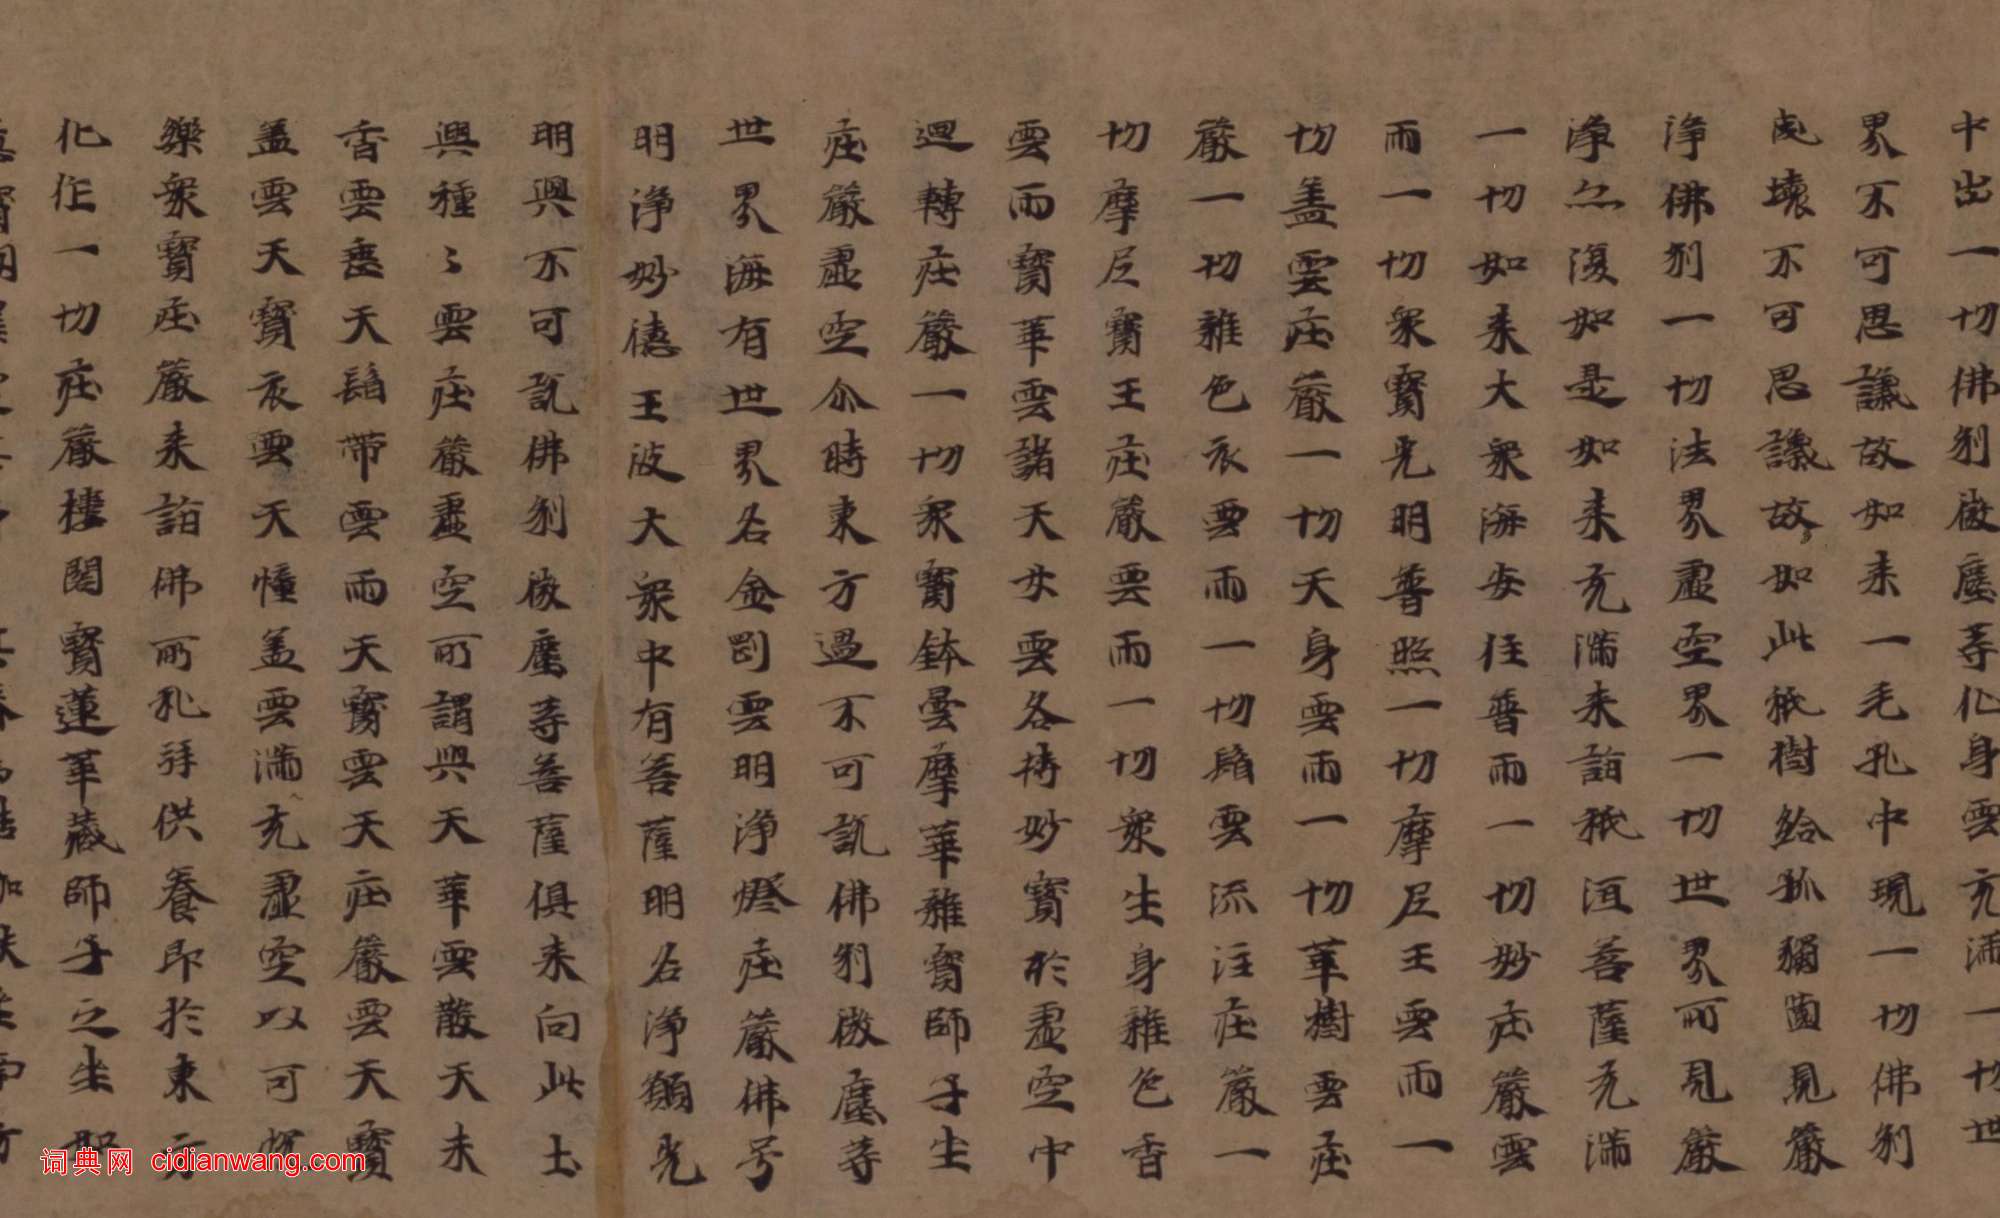 中出一切佛刹微塵等化身雲充滿一切世
界不可思議故如来一毛孔中現一切佛刹
成壞不可思議故如此祇樹給孤獨園見嚴
淨佛刹一切法界虛空界一切世界所見嚴
淨亦復如是如来充滿来詣祇洹菩薩充滿
一切如来大衆海安住普雨一切妙庄嚴雲
雨一切衆寶光明普照一切摩尼王雲雨一
切盖雲庄嚴一切天身雲雨一切華樹雲庄
嚴一切雜色衣雲雨一切鬘雲流注庄嚴一
切摩尼寶王庄嚴雲雨一切衆生身雜色香
雲雨寶華雲諸天女雲各持妙寶於虛空中
迴轉庄嚴一切衆寶鉢曇摩華雜寶師子坐
庄嚴虛空尒時東方過不可說佛刹微塵等
世界海有世界名金剛雲明淨燈庄嚴佛号
明淨妙德王彼大衆中有菩薩明名淨願光
明與不可說佛刹微塵等菩薩俱来向此土
興種〻雲庄嚴虛空所謂興天華雲散天末
香雲垂天鬘帶雲雨天寶雲天庄嚴雲天寶
盖雲天寶衣雲天幢盖雲滿充虛空以可悅
樂衆寶庄嚴来詣佛所礼拜供養即於東方
化作一切庄嚴樓閣寶蓮華藏師子之坐如
词典网 cidianwang.com